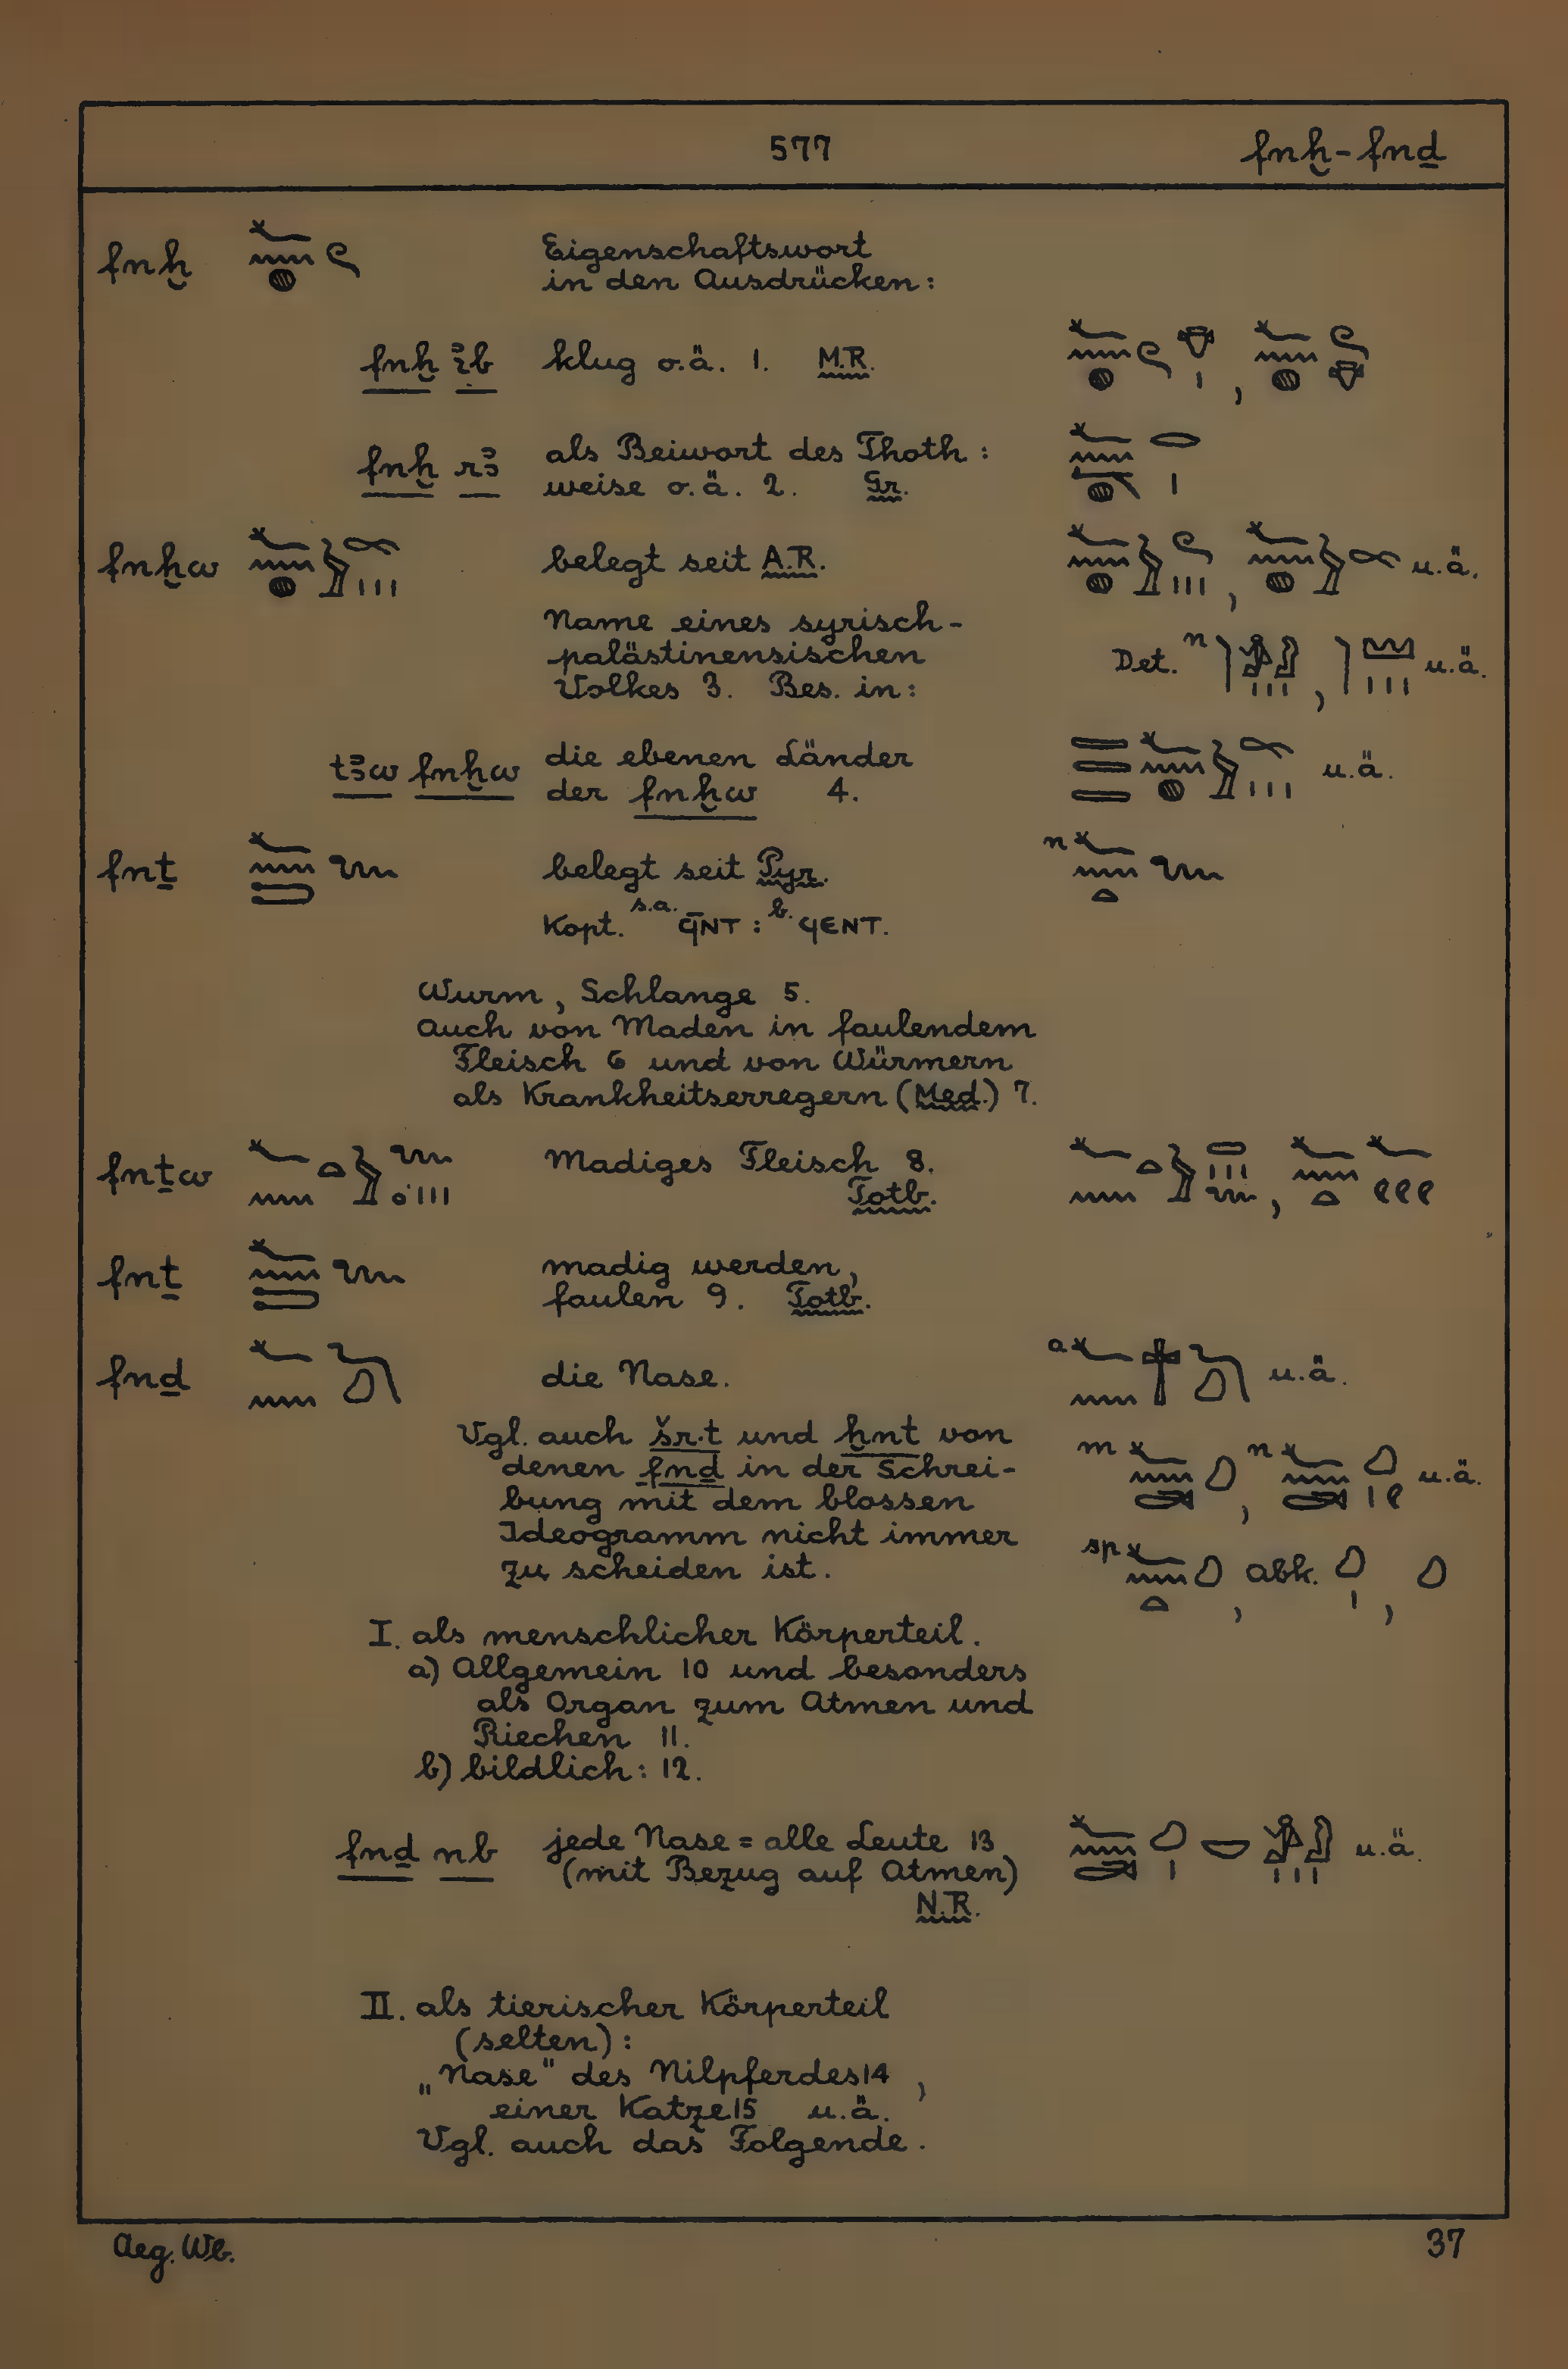 577 fnḫ - fnḏ
fnḫ Eigenschaftswort
in den Ausdrücken:
fnḫ ı͗b klug o.ä. 1. M.R.
fnḫ rꜣ als Beiwort des Thoth:
weise o.ä. 2. Gr.
fnḫw belegt seit A.R. u.ä.
Name eines syrisch-
palästinensischen
Volkes 3. Bes. in:
Det. n u.ä.
tꜣw fnḫw die ebenen Länder
der fnḫw 4. u.ä.
fnṯ belegt seit Pyr. n
Kopt. s.a. ϥ̄ⲛⲧ : b. ϥⲉⲛⲧ.
Wurm, Schlange 5.
Auch von Maden in faulendem
Fleisch 6 und von Würmern
als Krankheitserregern (Med.) 7.
fnṯw Madiges Fleisch 8.
Totb.
fnṯ madig werden,
faulen 9. Totb.
fnḏ die Nase. a u.ä.
Vgl. auch šr·t und ḫnt von
denen fnḏ in der Schrei-
bung mit dem blossen
Ideogramm nicht immer
zu scheiden ist.
m , n u.ä.
sp , abk. ,
I. als menschlicher Körperteil.
a) Allgemein 10 und besonders
als Organ zum Atmen und
Riechen 11.
b) bildlich: 12.
fnḏ nb jede Nase = alle Leute 13 u.ä.
(mit Bezug auf Atmen)
N.R.
II. als tierischer Körperteil
(selten):
„Nase" des Nilpferdes 14 ,
einer Katze 15 u.ä.
Vgl. auch das Folgende.
Aeg. Wb. 37